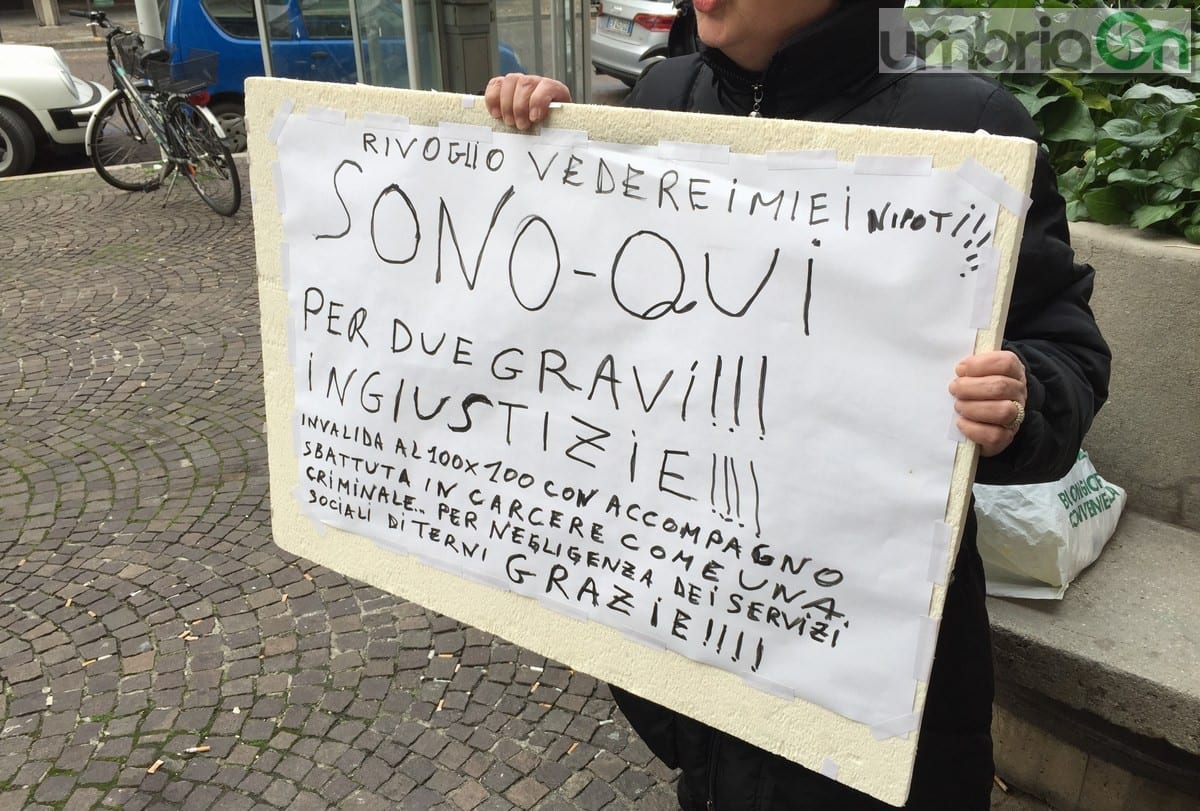 umbriaOn
RIVOGLIO VEDERE i MIEi NIPOTi!!!
SONO-QUi
PER DUE GRAVi!!!!
iNGIUSTIZiE!!!!
INVALIDA AL 100x100 CON ACCOMPAGNO
SBATTUTA IN CARCERE COME UNA
CRIMINALE.. PER NEGLIGENZA DEI SERVIZI
SOCIALI DI TERNI GRAZIE!!!!